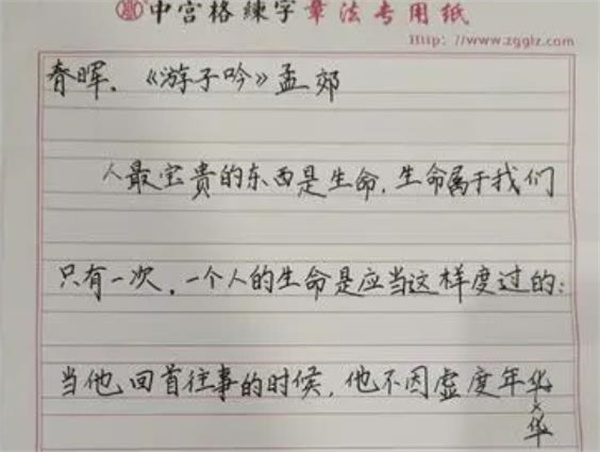 中宫格練字章法专用纸
Http://www.zgglz.com
春晖.《游子吟》孟郊
人最宝贵的东西是生命,生命属于我们
只有一次,一个人的生命是应当这样度过的:
当他回首往事的时候,他不因虚度年华
×
华